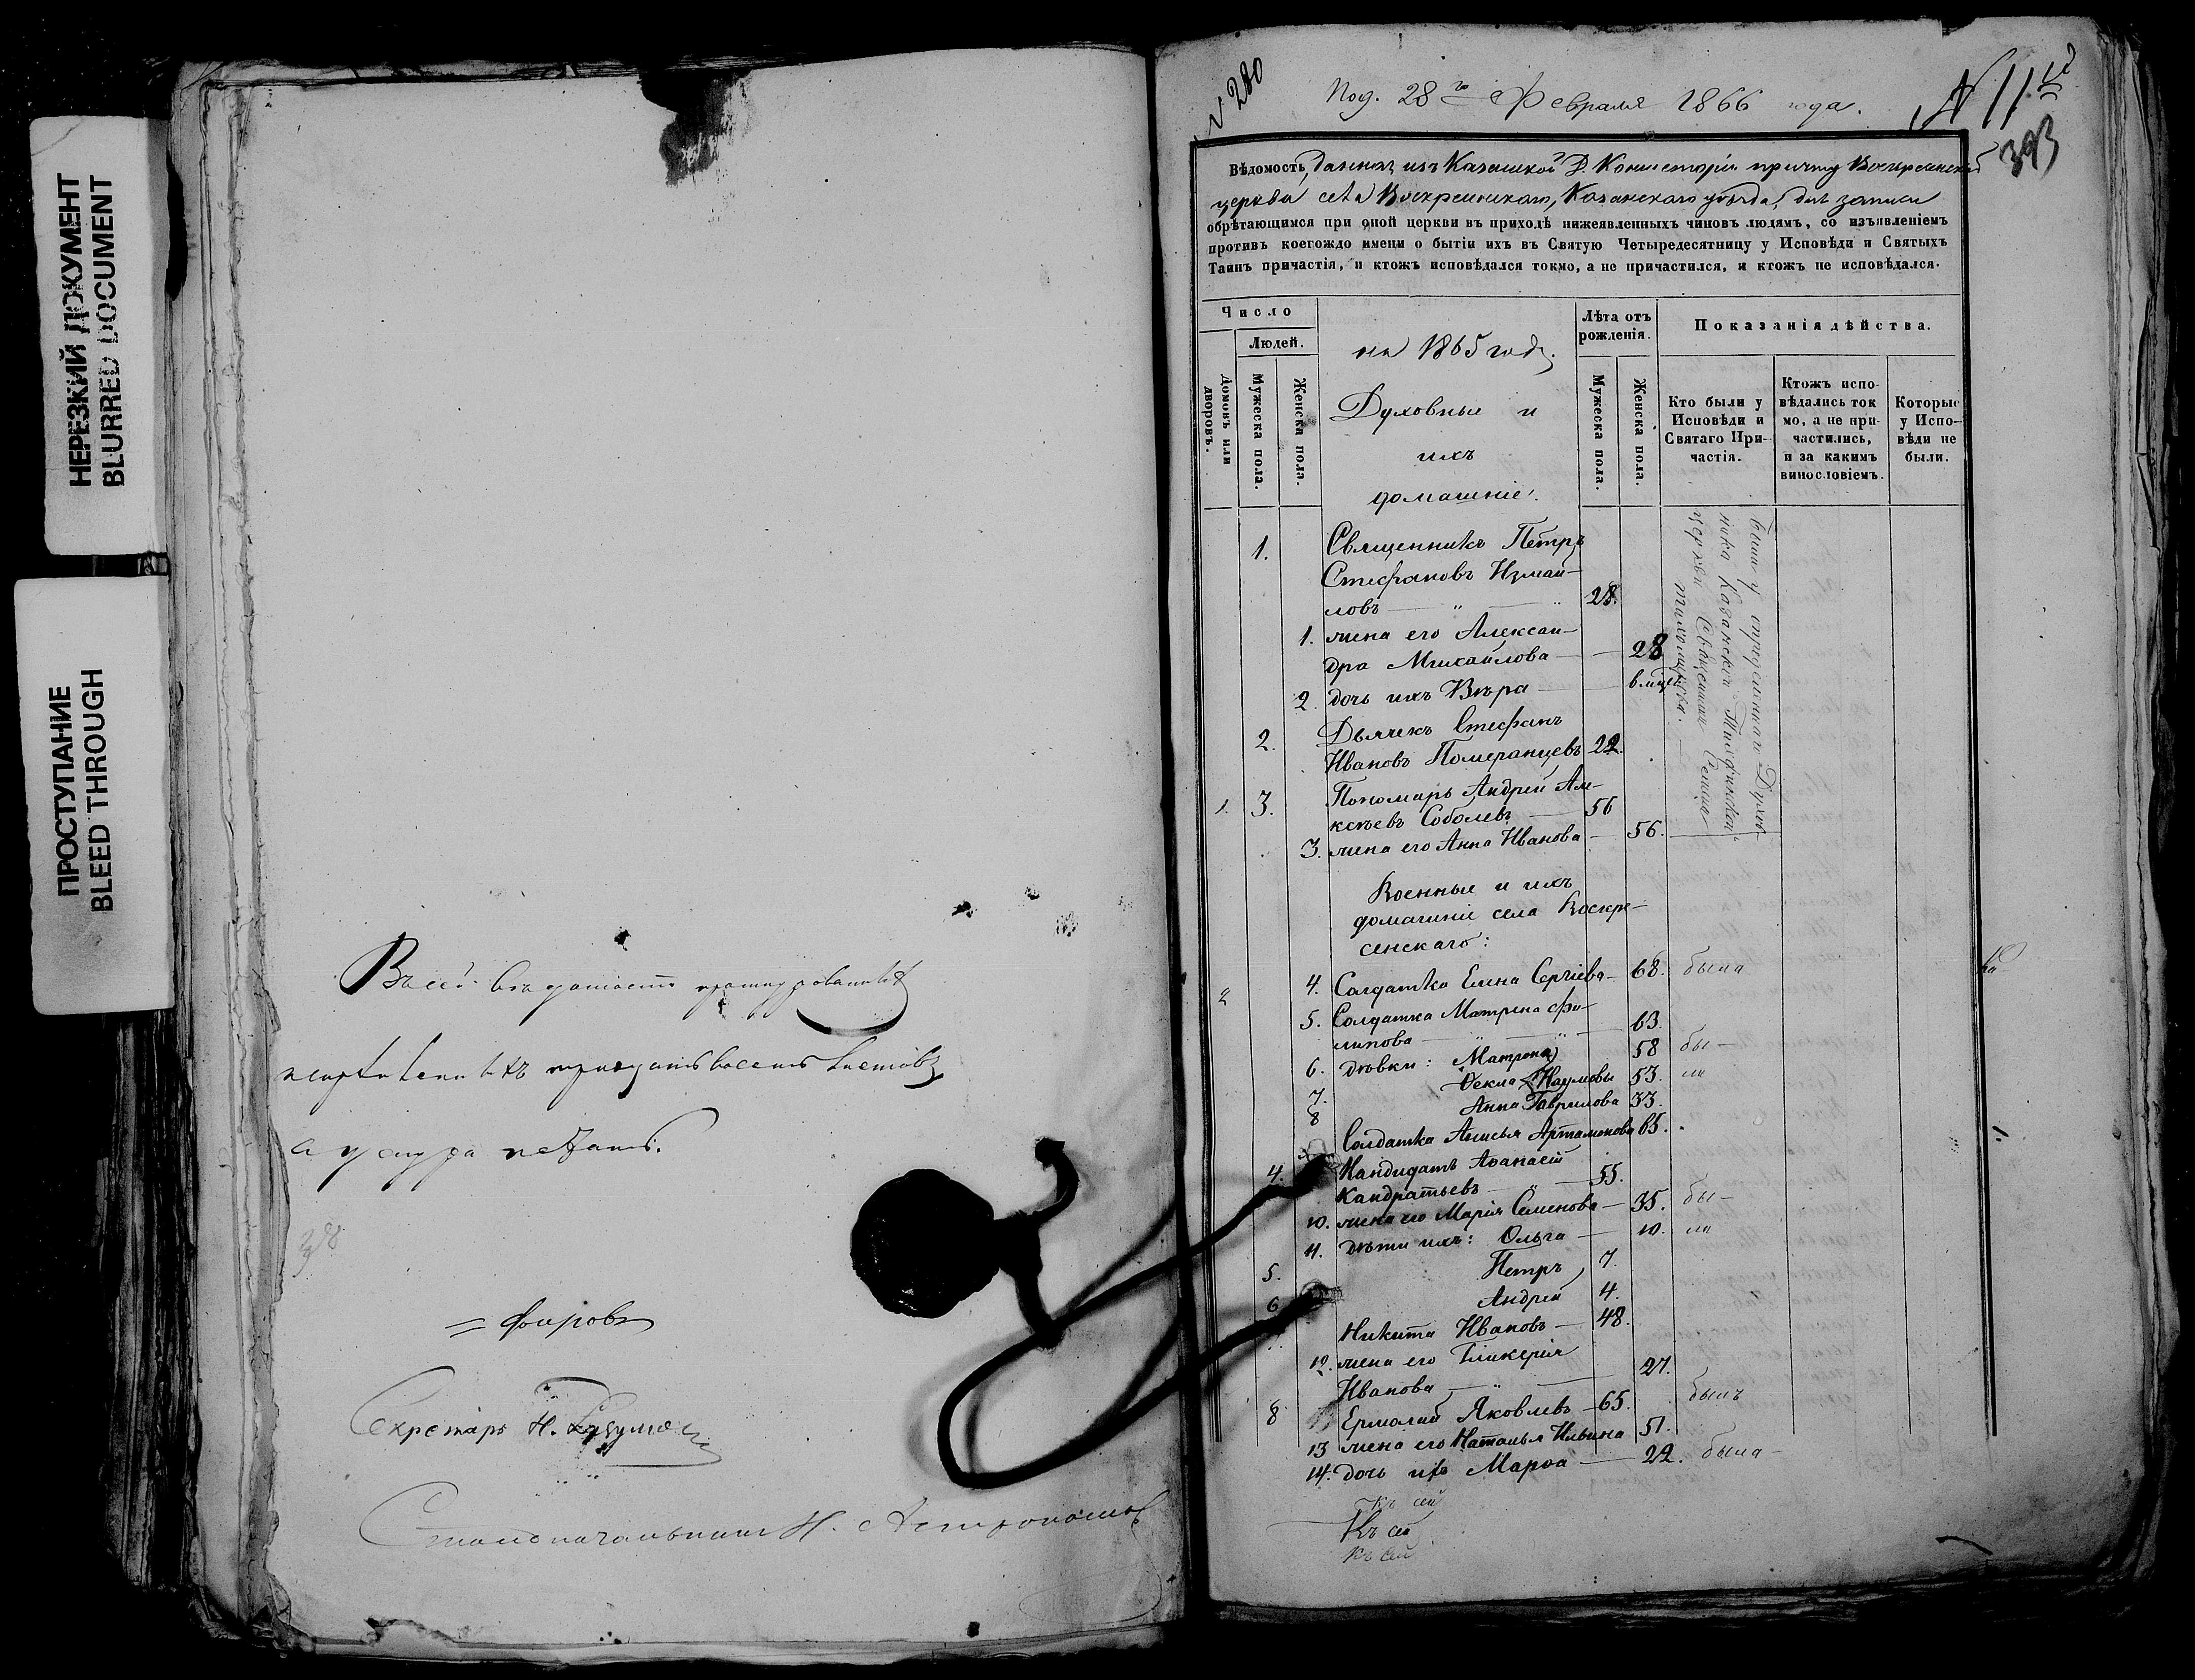 НЕРЕЗКИЙ ДОКУМЕНТ
BLURRED DOCUMENT
ПРОСТУПАНИЕ
BLEED THROUGH
Въ сей
листовъ
а у снура печать.
38
Секретарь Н.
Столоначальникъ Н.
№ 280
Под. 28го Февраля 1866 года.
№ 11й
393
Вѣдомость, данная изъ Казанской Д. Консисторіи причту Воскресенской
церкви села Воскресенскаго, Казанскаго уѣзда, для записи
обрѣтающимся при оной церкви въ приходѣ нижеявленныхъ чиновъ людямъ, со изъявленіемъ
противъ коегождо имени о бытіи ихъ въ Святую Четыредесятницу у Исповѣди и Святыхъ
Таинъ причастія, и ктожъ исповѣдался токмо, а не причастился, и ктожъ не исповѣдался.
Число
Людей.
Домовъ или дворовъ.
Мужеска пола.
Женска пола.
на 1865 годъ.
Духовные и
ихъ
домашніе.
Лѣта отъ рожденія.
Мужеска пола.
Женска пола.
Показанія дѣйства.
Кто были у Исповѣди и Святаго Причастія.
Ктожъ исповѣдались ток мо, а не причастились, и за какимъ винословіемъ.
Которые у Исповѣди не были.
1. Священникъ Петръ
Стефановъ Измаи-
ловъ — " — 28.
1. жена его Алексан-
дра Михайлова — 28
2. дочь ихъ Вѣра —
2. Дьячекъ Стефанъ
Ивановъ Померанцевъ 22.
1. 3. Пономарь Андрей Але-
ксѣевъ Соболевъ — 56
3. жена его Анна Иванова — 56.
были у опредѣленнаго Духов-
ника Казанской Тихвинской
церкви Священника
Тихомирова.
Военные и ихъ
домашніе села Воскре-
сенскаго:
2 4. Солдатка Елена Сергіева — 68. была
5. Солдатка Матрена Фи-
липова — 63.
6. дѣвки: Матрона 58 бы-
7. Ѳекла Наумовы 53. ли
8 Анна Гаврилова 33.
Солдатка Анисья Артамонова 65.
4. Кандидатъ Аѳанасій
Кандратьевъ — 55.
10. жена его Марія Семенова — 35. бы-
11. дѣти ихъ: Ольга — 10. ли
5. Петръ 7.
6 Андрей 4.
Никита Ивановъ — 48.
12. жена его Гликерія
Иванова — 27.
8 Ермолай Яковлевъ — 65. былъ
13 жена его Наталья Ильина 51.
14. дочь ихъ Марѳа — 22. была
Къ сей
Къ сей
Къ сей